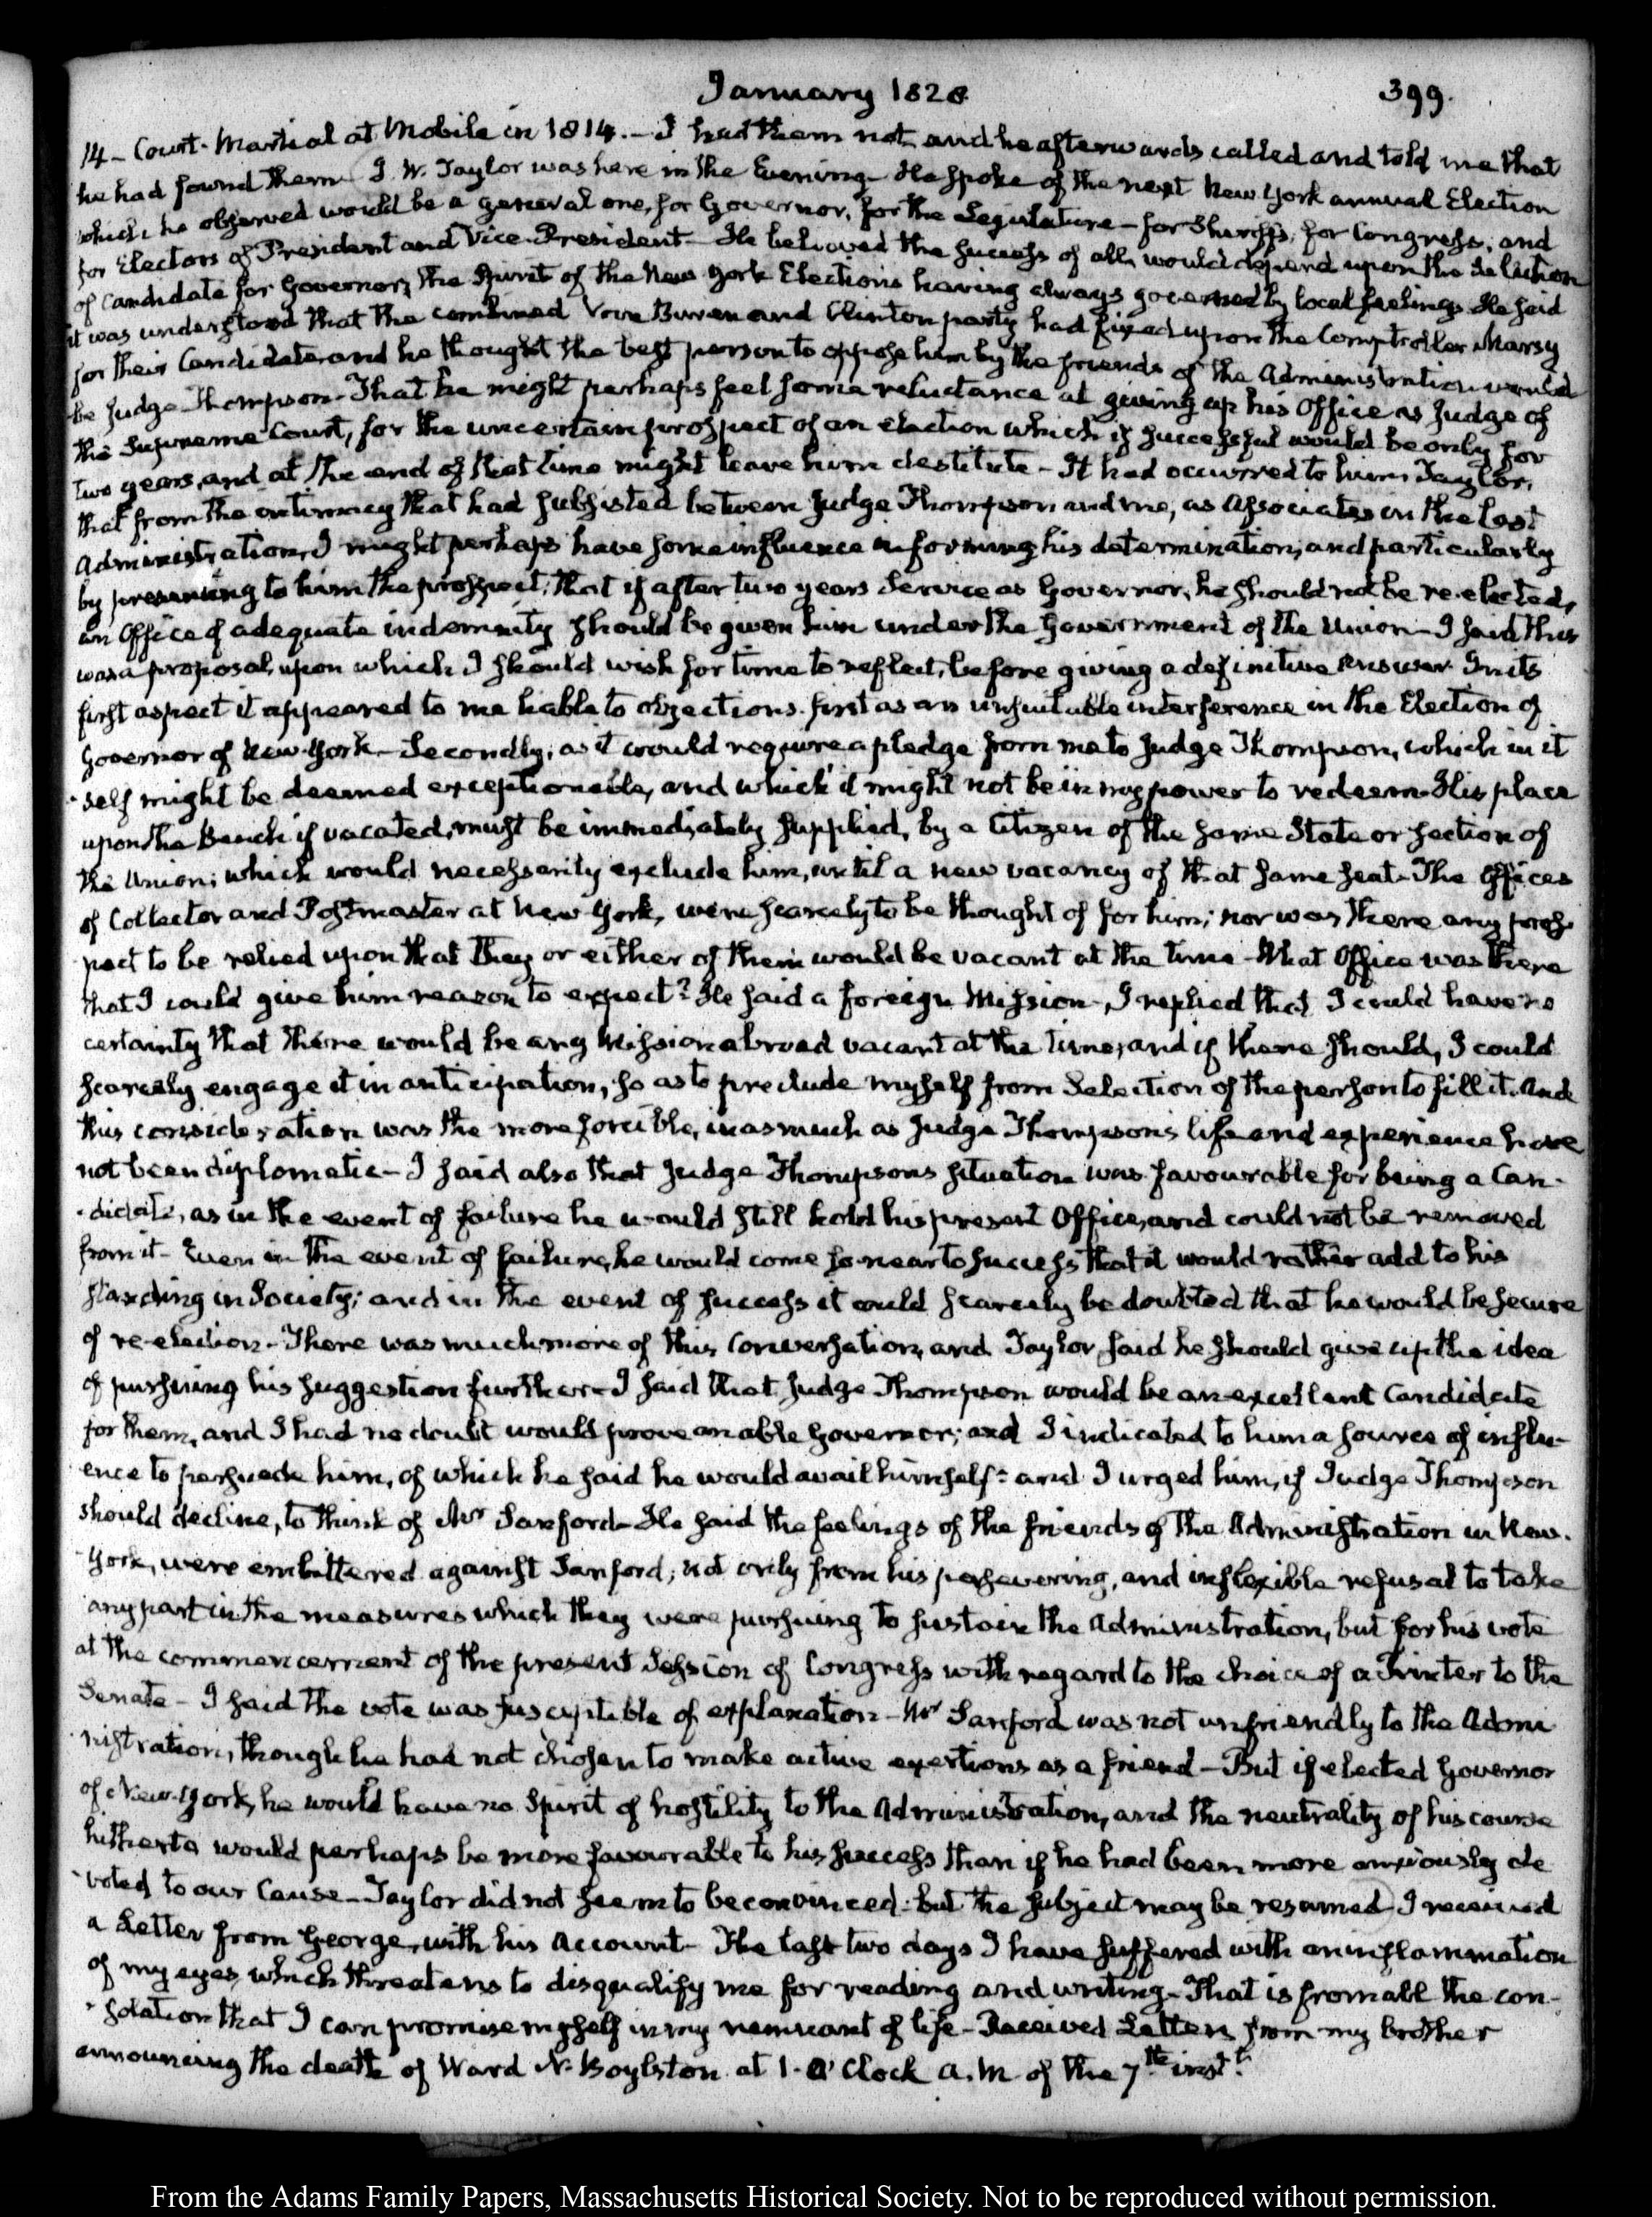 January 1828.
399.
14 – Court-Martial at Mobile in 1814. – I had them not and he afterwards called and told me that
he had found them J. W. Taylor was here in the Evening – He spoke of the next New York annual Election
which he observed would be a general one, for Governor, for the Legislature – for Sheriffs, for Congress, and
for Electors of President and Vice-President – He believed the success of all, would depend upon the selection
of candidate for Governor, the Spirit of the New York Elections having always governed by local feelings. He said
it was understood that the combined Van Buren and Clinton party had fixed upon the Comptroller Marsy
for their Candidate and he thought the best person to oppose him by the friends of the Administration would
be Judge Thompson – That he might perhaps feel some reluctance at giving up his Office as Judge of
the Supreme Court, for the uncertain prospect of an election which if successful would be only for
two years, and at the end of that time might leave him destitute – It had occurred to him, Taylor,
that from the intimacy that had subsisted between Judge Thompson and me, as Associates in the last
Administration, I might perhaps have some influence in forming his determination, and particularly
by presenting to him the prospect, that if after two years service as Governor, he should not be re-elected,
an Office of adequate indemnity should be given him under the Government of the Union – I said this
was a proposal, upon which I should wish for time to reflect, before giving a definitive answer. In its
first aspect it appeared to me liable to objections. first as an unsuitable interference in the Election of
Governor of New York – Secondly, as it would require a pledge from me to Judge Thompson, which in it
-self might be deemed exceptionable, and which it might not be in my power to redeem – His place
upon the Bench if vacated, must be immediately supplied, by a Citizen of the same State or section of
the Union; which would necessarily exclude him, until a new vacancy of that same seat. The Offices
of Collector and Postmaster at New York, were scarcely to be thought of for him; nor was there any pros-
pect to be relied upon that they or either of them would be vacant at the time – What Office was there
that I could give him reason to expect? He said a foreign Mission – I replied that I could have no
certainty that there would be any Mission abroad vacant at the time, and if there should, I could
scarcely engage it in anticipation, so as to preclude myself from selection of the person to fill it. And
this consideration was the more forcible, inasmuch as Judge Thompson's life and experience have
not been diplomatic – I said also that Judge Thompsons situation was favourable for being a Can-
-didate, as in the event of failure he would still hold his present Office, and could not be removed
from it – Even in the event of failure, he would come so near to success that it would rather add to his
standing in Society; and in the event of success it could scarcely be doubted that he would be secure
of re-election – There was much more of this conversation, and Taylor said he should give up the idea
of pursuing his suggestion further – I said that Judge Thompson would be an excellent Candidate
for them, and I had no doubt would prove an able Governor; and I indicated to him a source of influ-
ence to persuade him, of which he said he would avail himself: and I urged him, if Judge Thompson
should decline, to think of Mr Sanford – He said the feelings of the friends of the Administration in New-
York, were embittered against Sanford; not only from his persevering, and inflexible refusal to take
any part in the measures which they were pursuing to sustain the Administration, but for his vote
at the commencement of the present Session of Congress with regard to the choice of a Printer to the
Senate – I said the vote was susceptible of explanation – Mr Sanford was not unfriendly to the Admi
-nistration, though he had not chosen to make active exertions as a friend – But if elected Governor
of New-York, he would have no Spirit of hostility to the Administration, and the neutrality of his course
hitherto would perhaps be more favourable to his success than if he had been more anxiously de
-voted to our Cause – Taylor did not seem to be convinced: but the subject may be resumed I received
a Letter from George, with his Account – The last two days I have suffered with an inflammation
of my eyes, which threatens to disqualify me for reading and writing – That is from all the con-
-solation that I can promise myself in my remnant of life – Received Letters from my brother
announcing the death of Ward N. Boylston at 1. O'Clock A.M. of the 7th instt.
From the Adams Family Papers, Massachusetts Historical Society. Not to be reproduced without permission.